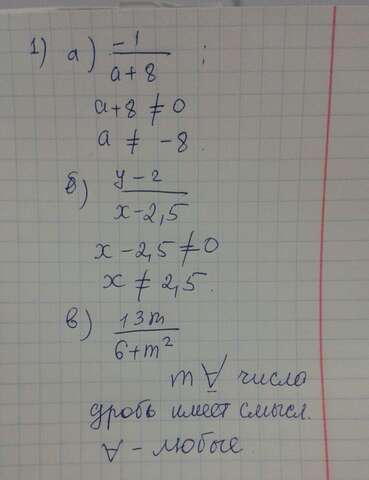 1) а) -1/(a+8) ;
a+8 ≠ 0
a ≠ -8.
б) (y-2)/(x-2,5)
x-2,5 ≠ 0
x ≠ 2,5.
в) 13m/(6+m²)
m ∀ числа
дробь имеет смысл.
∀ - любые.